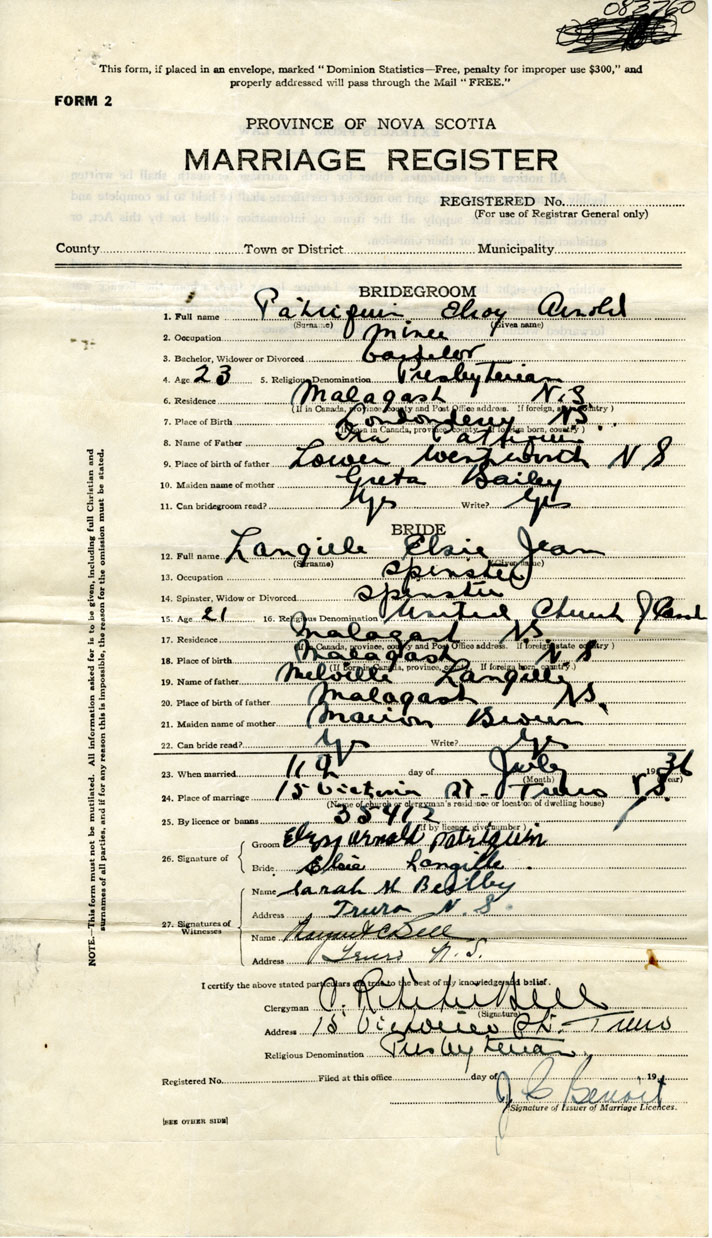 083760
This form, if placed in an envelope, marked "Dominion Statistics—Free, penalty for improper use $300," and
properly addressed will pass through the Mail "FREE."
FORM 2
PROVINCE OF NOVA SCOTIA
MARRIAGE REGISTER
REGISTERED No.
(For use of Registrar General only)
County Town or District Municipality
BRIDEGROOM
1. Full name Patriquin Elroy Arnold
(Surname) (Given name)
2. Occupation Miner
3. Bachelor, Widower or Divorced Bachelor
4. Age 23 5. Religious Denomination Presbyterian
6. Residence Malagash N.S
(If in Canada, province, county and Post Office address. If foreign, state country)
7. Place of Birth Londonderry N.S.
(If born in Canada, province, county. If foreign born, country)
8. Name of Father Ira Patriquin
9. Place of birth of father Lower Wentworth N S
10. Maiden name of mother Greta Bailey
11. Can bridegroom read? Yes Write? Yes
BRIDE
12. Full name Langille Elsie Jean
(Surname) (Given name)
13. Occupation Spinster
14. Spinster, Widow or Divorced Spinster
15. Age 21 16. Religious Denomination United Church
17. Residence Malagash N.S
(If in Canada, province, county, and Post Office address. If foreign state country)
18. Place of birth Malagash N S
(If born in Canada, province, county. If foreign born, country.)
19. Name of father Melville Langille
20. Place of birth of father Malagash N.S.
21. Maiden name of mother Marion Brown
22. Can bride read? Yes Write? Yes
23. When married 11 day of July 1936
(Month) (Year)
24. Place of marriage 15 Victoria St - Truro N.S.
(Name of church or clergyman's residence or location of dwelling house)
25. By licence or banns 35412
(If by licence, give number)
26. Signature of
Groom Elroy Arnold Patriquin
Bride Elsie Langille
27. Signatures of Witnesses
Name Sarah M
Address Truro N.S.
Name Bell
Address Truro N.S.
I certify the above stated particulars are true to the best of my knowledge and belief.
Clergyman Bell
(Signature)
Address 15 Victoria St - Truro
Religious Denomination Presbyterian
Registered No. Filed at this office day of 19
J C Benoit
Signature of Issuer of Marriage Licences.
[SEE OTHER SIDE]
NOTE.—This form must not be mutilated. All information asked for is to be given, including full Christian and
surnames of all parties, and if for any reason this is impossible, the reason for the omission must be stated.